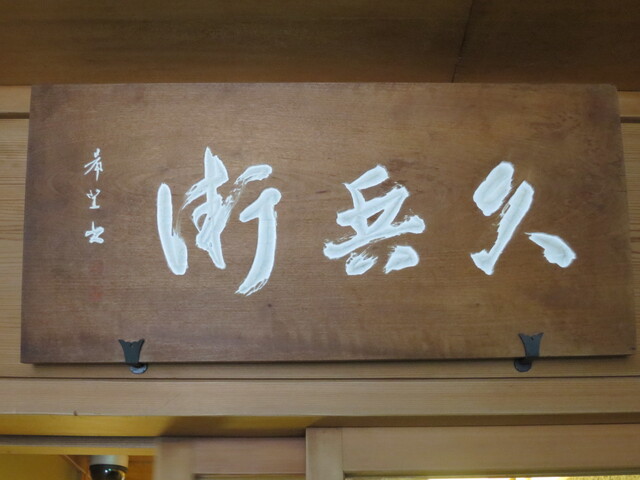 久兵衛
希望書